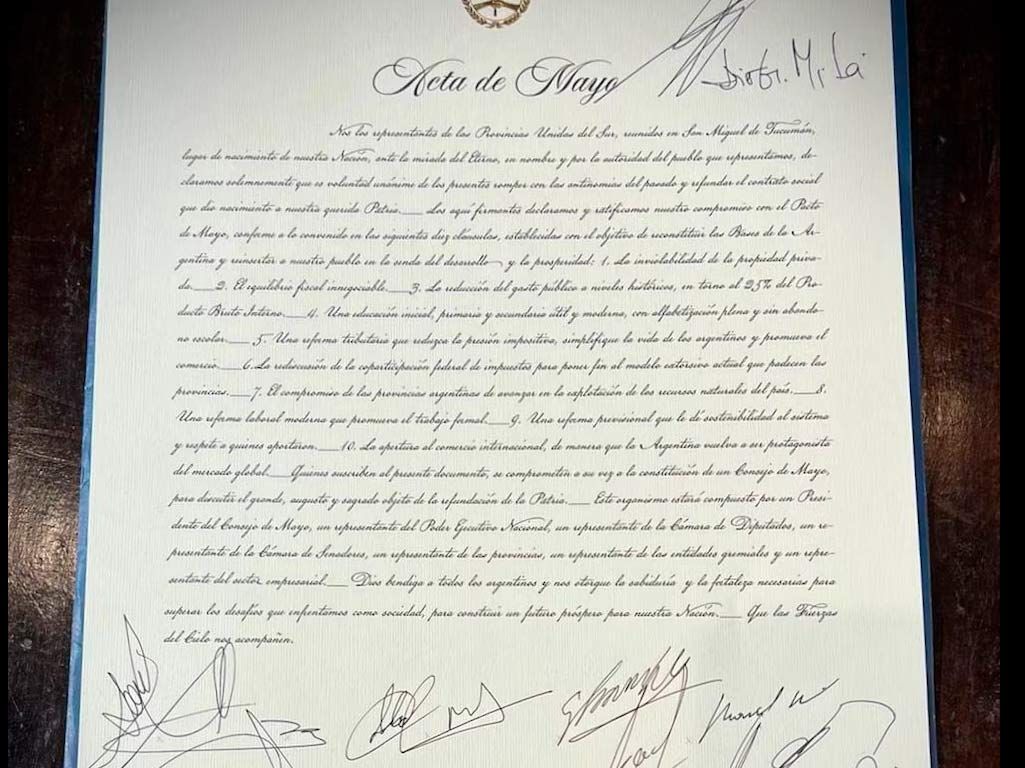 Acta de Mayo
Nos los representantes de las Provincias Unidas del Sur, reunidos en San Miguel de Tucumán,
lugar de nacimiento de nuestra Nación, ante la mirada del Eterno, en nombre y por la autoridad del pueblo que representamos, de-
claramos solemnemente que es voluntad unánime de los presentes romper con las antinomias del pasado y refundar el contrato social
que dio nacimiento a nuestra querida Patria.__ Los aquí firmantes declaramos y ratificamos nuestro compromiso con el Pacto
de Mayo, conforme a lo convenido en las siguientes diez cláusulas, establecidas con el objetivo de reconstituir las Bases de la Ar-
gentina y reinsertar a nuestro pueblo en la senda del desarrollo y la prosperidad: 1. La inviolabilidad de la propiedad priva-
da.__2. El equilibrio fiscal innegociable.__3. La reducción del gasto público a niveles históricos, en torno al 25% del Pro-
ducto Bruto Interno.__4. Una educación inicial, primaria y secundaria útil y moderna, con alfabetización plena y sin abando-
no escolar.__ 5. Una reforma tributaria que reduzca la presión impositiva, simplifique la vida de los argentinos y promueva el
comercio.__ 6.La rediscusión de la coparticipación federal de impuestos para poner fin al modelo extorsivo actual que padecen las
provincias.__7. El compromiso de las provincias argentinas de avanzar en la explotación de los recursos naturales del país.__8.
Una reforma laboral moderna que promueva el trabajo formal.__ 9. Una reforma previsional que le dé sostenibilidad al sistema
y respete a quienes aportaron.__10. La apertura al comercio internacional, de manera que la Argentina vuelva a ser protagonista
del mercado global.__ Quienes suscriben al presente documento, se comprometen a su vez a la constitución de un Consejo de Mayo,
para discutir el grande, augusto y sagrado objeto de la refundación de la Patria.__ Este organismo estará compuesto por un Presi-
dente del Consejo de Mayo, un representante del Poder Ejecutivo Nacional, un representante de la Cámara de Diputados, un re-
presentante de la Cámara de Senadores, un representante de las provincias, un representante de las entidades gremiales y un repre-
sentante del sector empresarial.__ Dios bendiga a todos los argentinos y nos otorgue la sabiduría y la fortaleza necesarias para
superar los desafíos que enfrentamos como sociedad, para construir un futuro próspero para nuestra Nación.__ Que las Fuerzas
del Cielo nos acompañen.